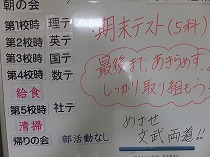 朝の会
第1校時 理テ
第2校時 英テ
第3校時 国テ
第4校時 数テ
給食
第5校時 社テ
清掃
帰りの会 部活動なし
期末テスト(5科)
最後まで、あきらめず、
しっかり取り組もう
めざせ
文武両道!!